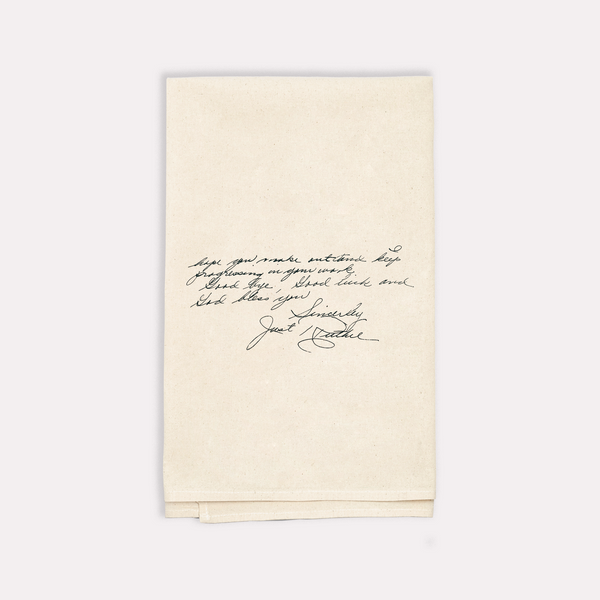 hope you make out and keep
progressing in your work.
Good bye, Good luck and
God bless you
Sincerley
Just Ruthie